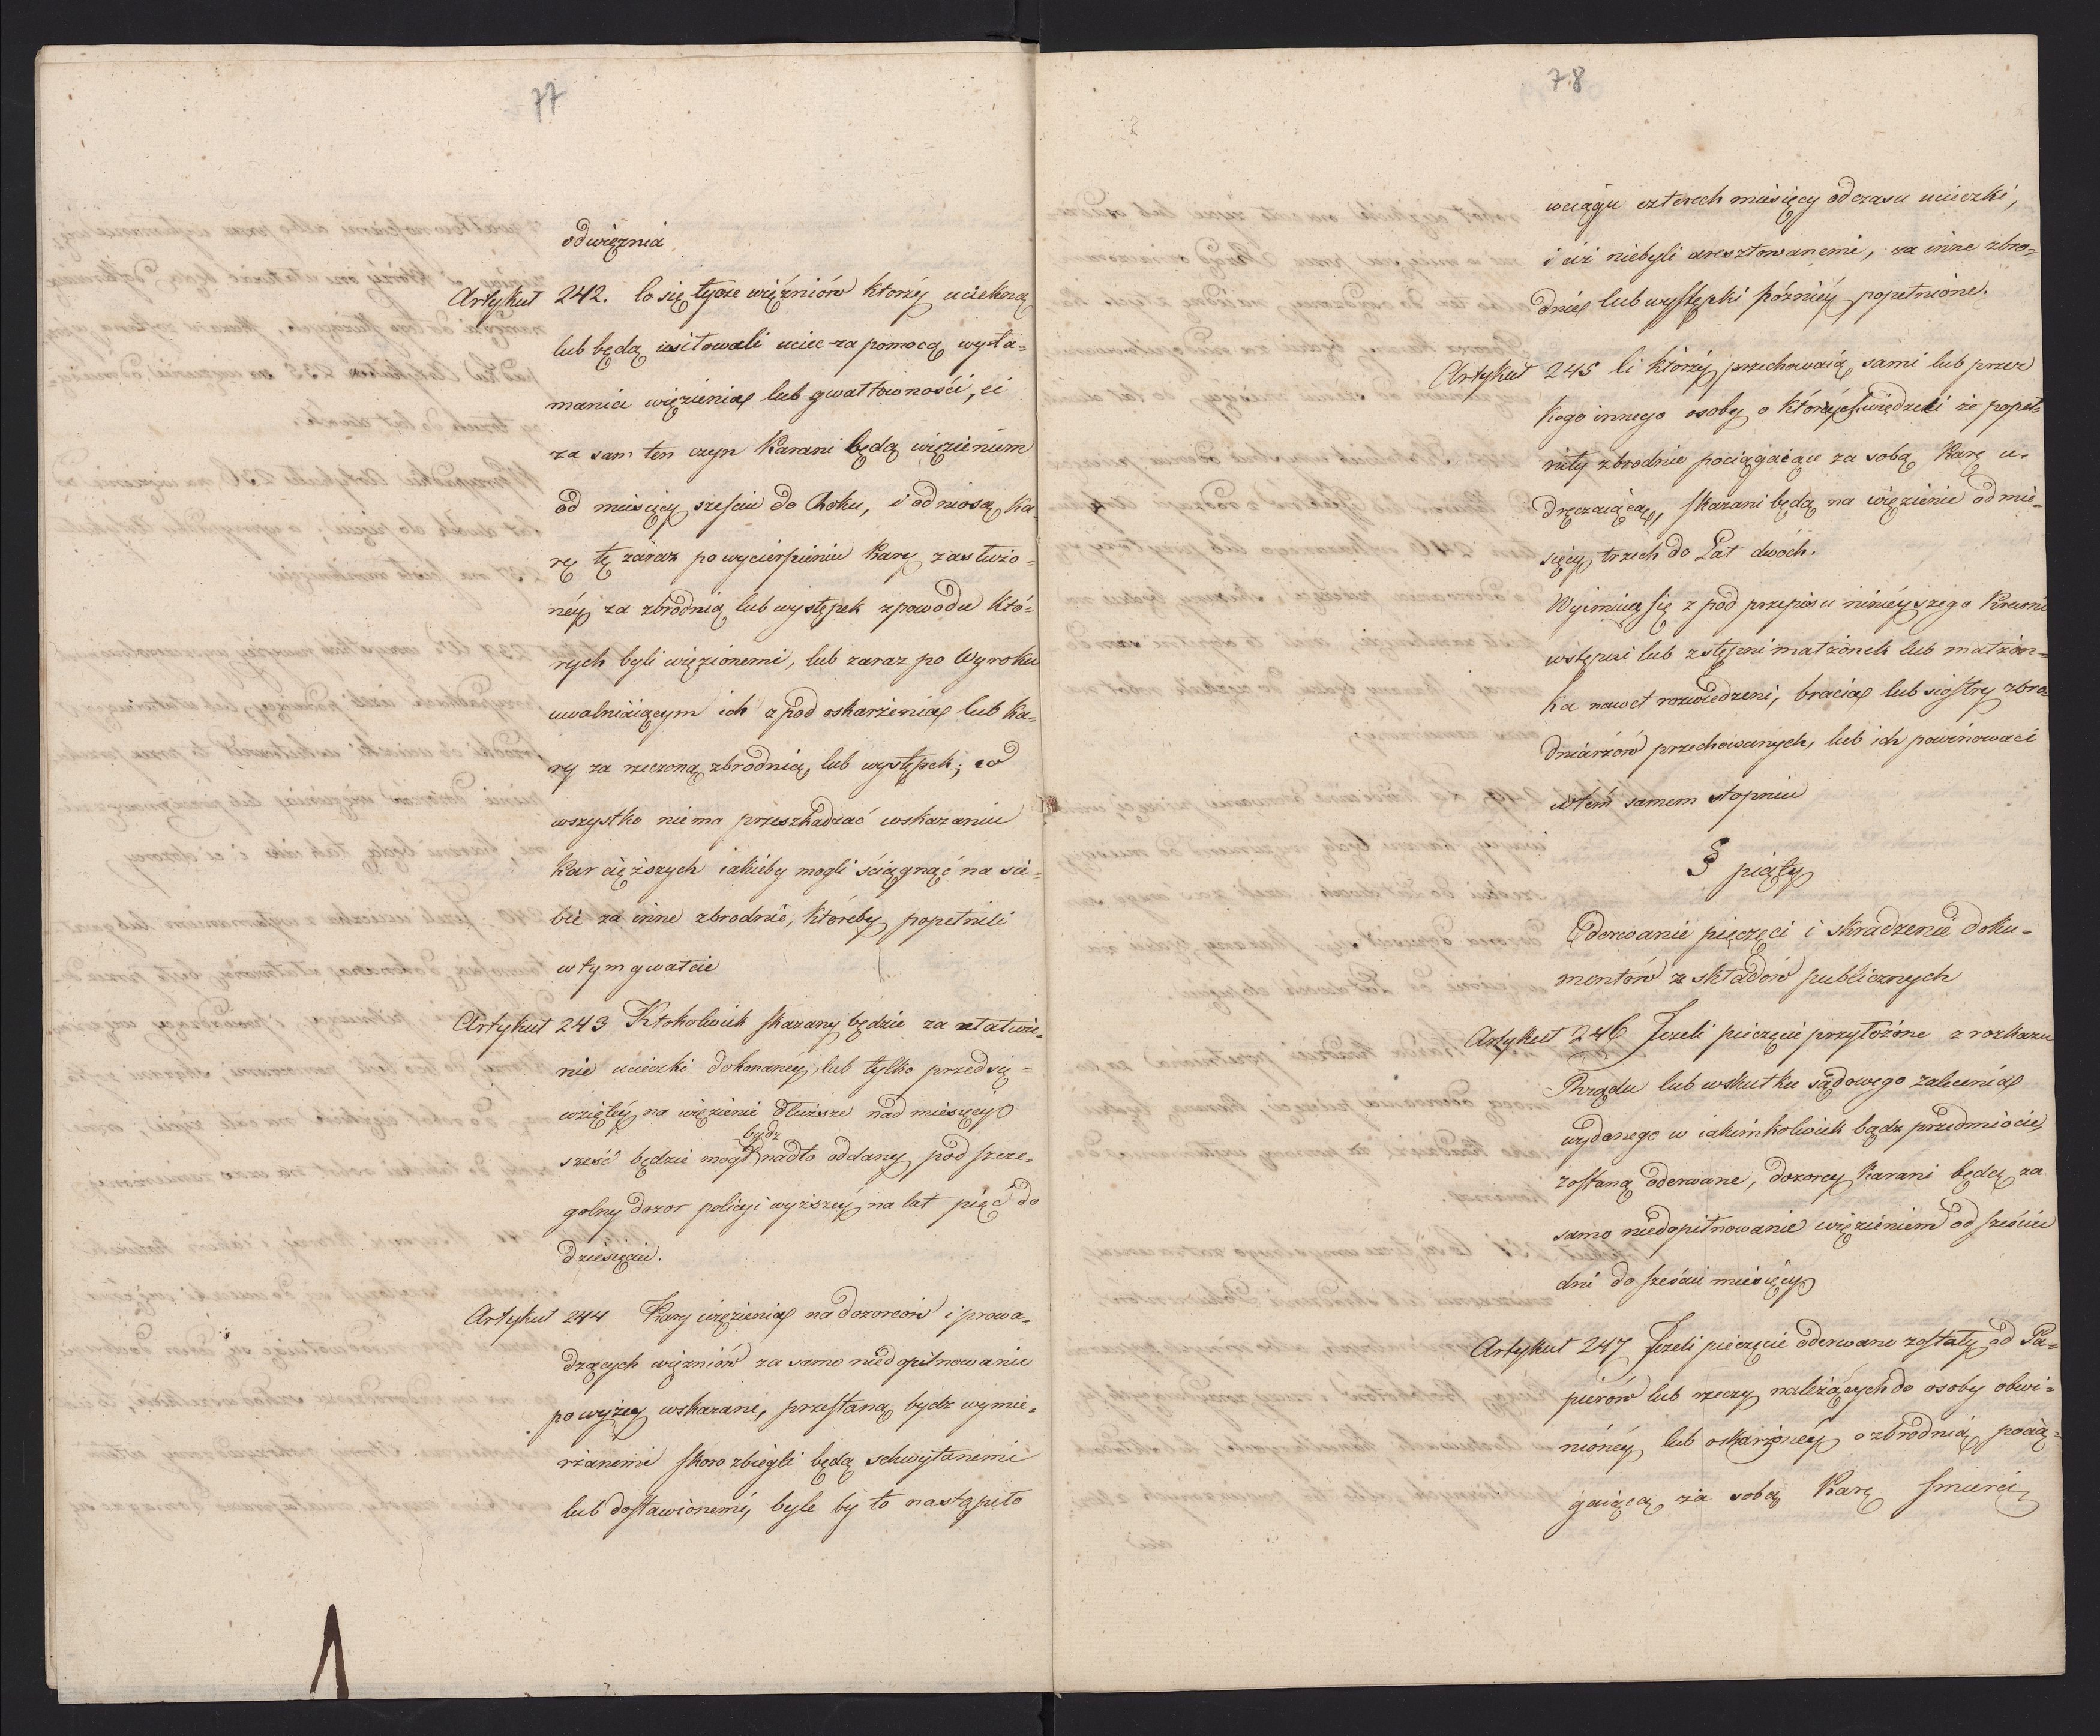 77
od więznia
Artykuł 242. Co się tycze więźniów którzy uciekną
lub będą usiłowali uciec za pomocą wyła=
mania więzienia lub gwałtowności, ci
za sam ten czyn karani będą więzieniem
od miesięcy sześciu do Roku, i odniosą ka=
rę tę zaraz po wycierpieniu kary zasłużo=
néy za zbrodnią lub występek z powodu któ=
rych byli więzionemi, lub zaraz po Wyroku
uwalniaiącym ich z pod oskarżenia lub ka=
ry za rzeczoną zbrodnią, lub występek; co
wszystko nie ma przeszkadzać wskazaniu
kar cięższych iakieby mogli ściągnąć na sie=
bie za inne zbrodnie, któreby popełnili
w tym gwałcie
Artykuł 243 Ktokolwiek skazany będzie za ułatwie=
nie ucieczki dokonanéy, lub tylko przedsię=
wziętéy na więzienie dłuższe nad miesięcy
bydz
sześć będzie mógł nadto oddany pod szcze=
golny dozor policyi wyższéy na lat pięć do
dziesięciu.
Artykuł 244 Kary więzienia na dozorców i prowa=
dzących więźniów za samo niedopilnowanie
powyżey wskazane, przestaną bydz wymie=
rzanemi skoro zbiegli będą schwytanemi
lub dostawionemi, byle by to nastąpiło
78
w ciągu czterech miesięcy od czasu ucieczki,
i ciż niebyli aresztowanemi, za inne zbro=
dnie lub występki późniéy popełnione.
Artykuł 245 Ci którzy przechowaią sami lub przez
kogo innego osoby o których wiedzeli że popeł=
niły zbrodnie pociągaiące za sobą karę u=
dręczaiącą, skazani będą na więzienie od mie=
sięcy trzech do Lat dwóch.
Wyimuią się z pod przepisu ninieyszego Krewni
wstępni lub zstępni małżonek lub małżon=
ka nawet rozwiedzeni, bracia lub siostry zbro=
dniarzów przechowanych, lub ich powinowaci
w tém samem stopniu
§ piąty
Oderwanie pięczęci i skradzenie doku=
mentów z składów publicznych
Artykuł 246 Jezeli pieczęcie przyłożone z rozkazu
Rządu lub w skutku sądowego zalecenia
wydanego w iakimkolwiek bądz przedmiocie,
zostaną oderwane, dozorcy karani będą za
samo niedopilnowanie więzieniem od sześciu
dni do sześciu miesięcy
Artykuł 247 Jezeli pieczęcie oderwane zostały od Pa=
pierów lub rzeczy należących do osoby obwi=
nionéy lub oskarżonéy o zbrodnią pocią=
gaiącą za sobą Karę śmierci